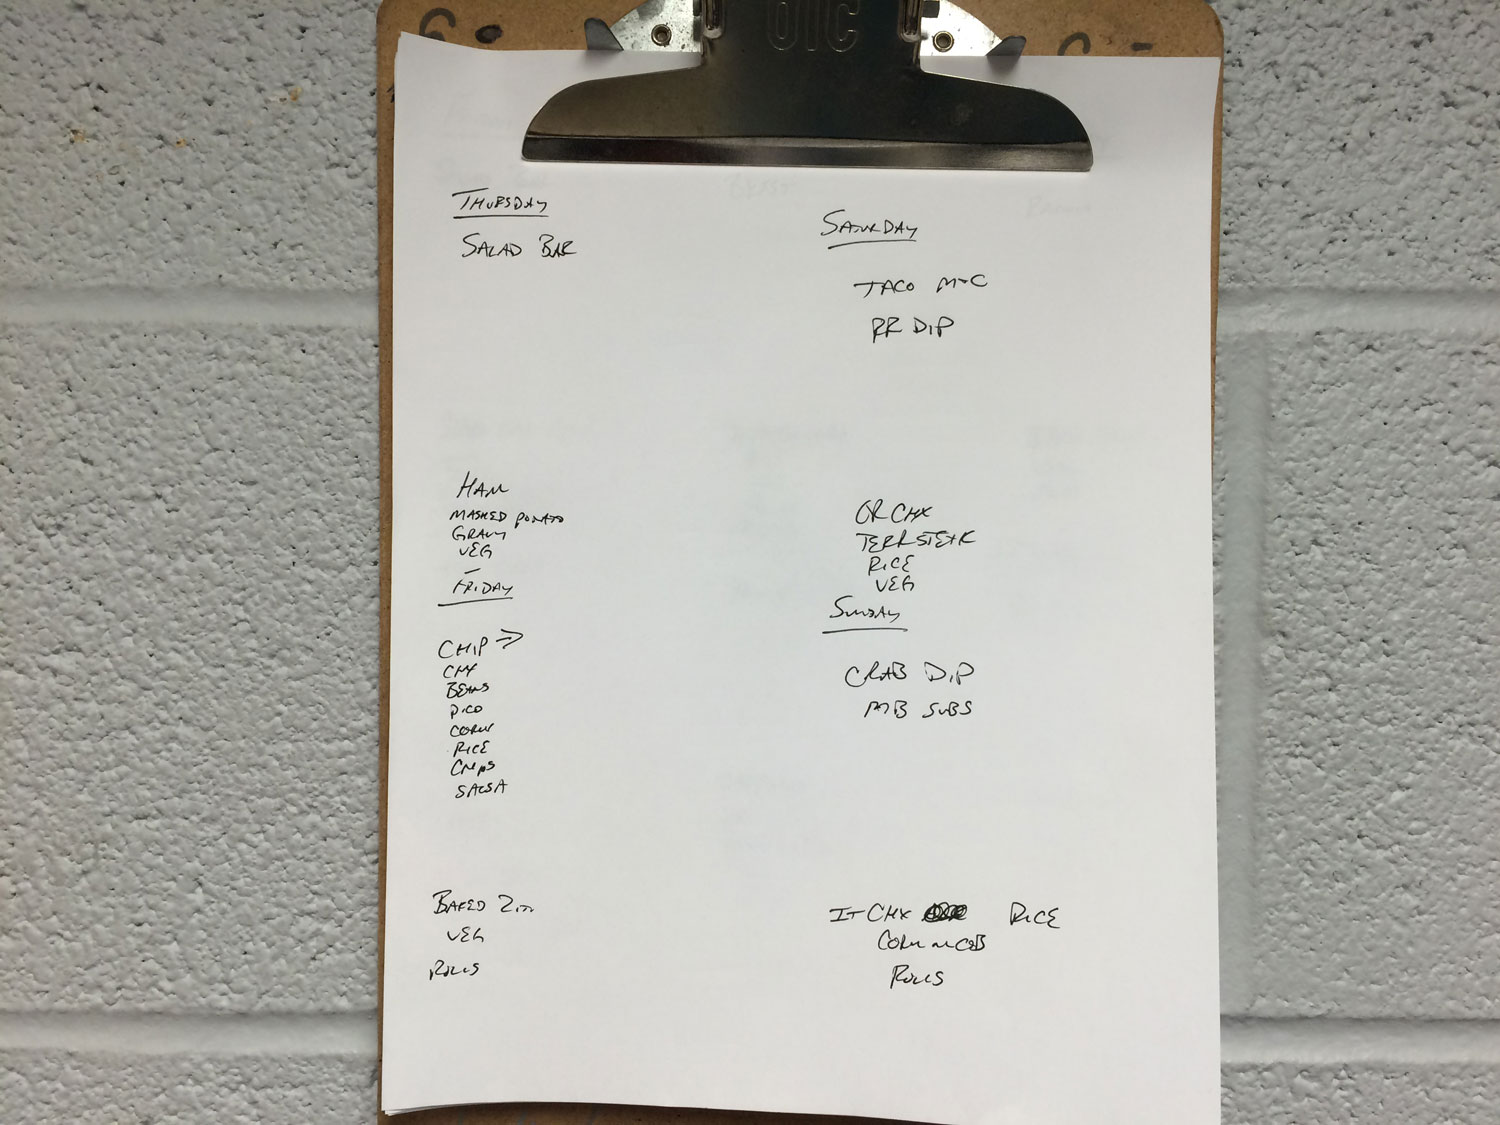 OIC
THURSDAY
SALAD BAR
HAM
MASHED POTATO
GRAVY
VEG
FRIDAY
CHIP →
CHX
BEANS
PICO
CORN
RICE
CHIPS
SALSA
BAKED ZITI
VEG
ROLLS
SATURDAY
TACO M+C
RR DIP
GR CHX
TERR STEAK
RICE
VEG
SUNDAY
CRAB DIP
MB SUBS
IT CHX RICE
CORN ON COB
ROLLS